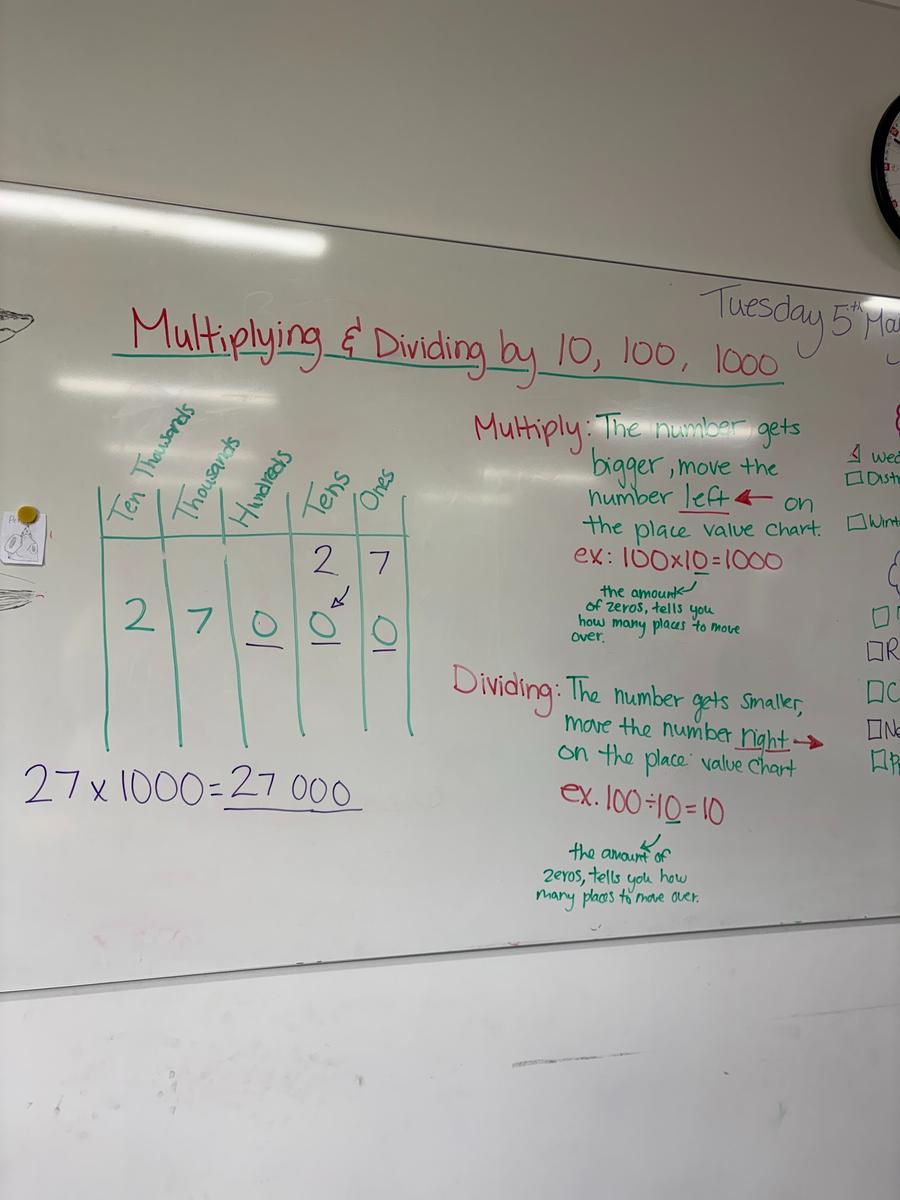 Tuesday 5th
Multiplying & Dividing by 10, 100, 1000
Ten Thousands
Thousands
Hundreds
Tens
Ones
2 7
2 7 0 0 0
27 x 1000 = 27 000
Multiply: The number gets
bigger, move the
number left ← on
the place value chart.
ex: 100x10=1000
the amount
of zeros, tells you
how many places to move
over.
Dividing: The number gets smaller,
move the number right →
on the place value chart
ex. 100÷10=10
the amount of
zeros, tells you how
many places to move over.